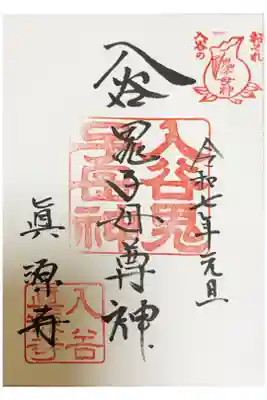 おそれ
入谷の
鬼子母神
令和七年元旦
入谷
鬼子母尊神
眞源寺
入谷鬼
入谷